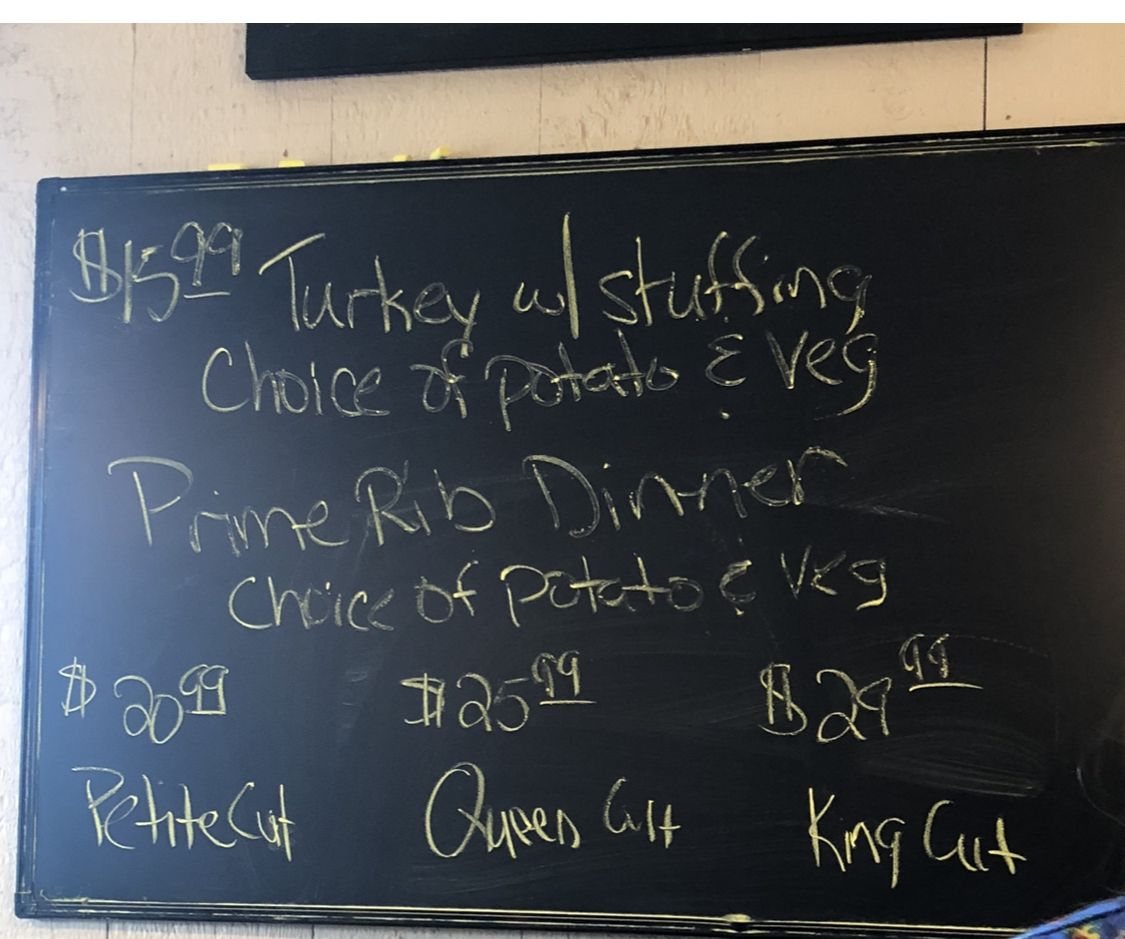 $15.99 Turkey w/ stuffing
Choice of potato & veg
Prime Rib Dinner
Choice of potato & veg
$20.99 $25.99 $29.99
Petite Cut Queen Cut King Cut